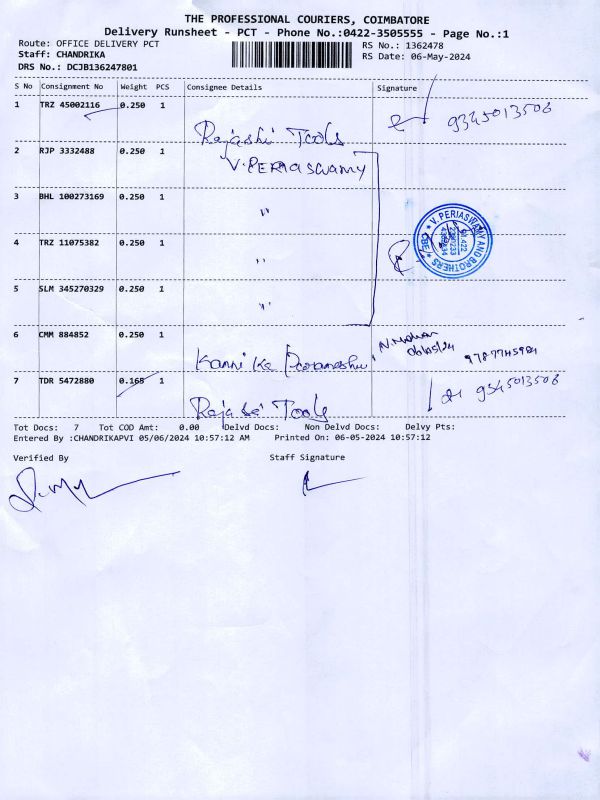 THE PROFESSIONAL COURIERS, COIMBATORE
Delivery Runsheet - PCT - Phone No.:0422-3505555 - Page No.:1
Route: OFFICE DELIVERY PCT RS No.: 1362478
Staff: CHANDRIKA RS Date: 06-May-2024
DRS No.: DCJB136247801
S No Consignment No Weight PCS Consignee Details Signature
1 TRZ 45002116 0.250 1 9345013506
Rajashi Tools
2 RJP 3332488 0.250 1 V.PERIASWAMY
3 BHL 100273169 0.250 1 "
V. PERIASWAMY AND BROTHERS
CBE
4 TRZ 11075382 0.250 1 "
5 SLM 345270329 0.250 1 "
6 CMM 884852 0.250 1 N.Mohan
06/05/24
Kanni ka Parameshwari
7 TDR 5472880 0.165 1 9345013506
Tools
Tot Docs: 7 Tot COD Amt: 0.00 Delvd Docs: Non Delvd Docs: Delvy Pts:
Entered By :CHANDRIKAPVI 05/06/2024 10:57:12 AM Printed On: 06-05-2024 10:57:12
Verified By Staff Signature